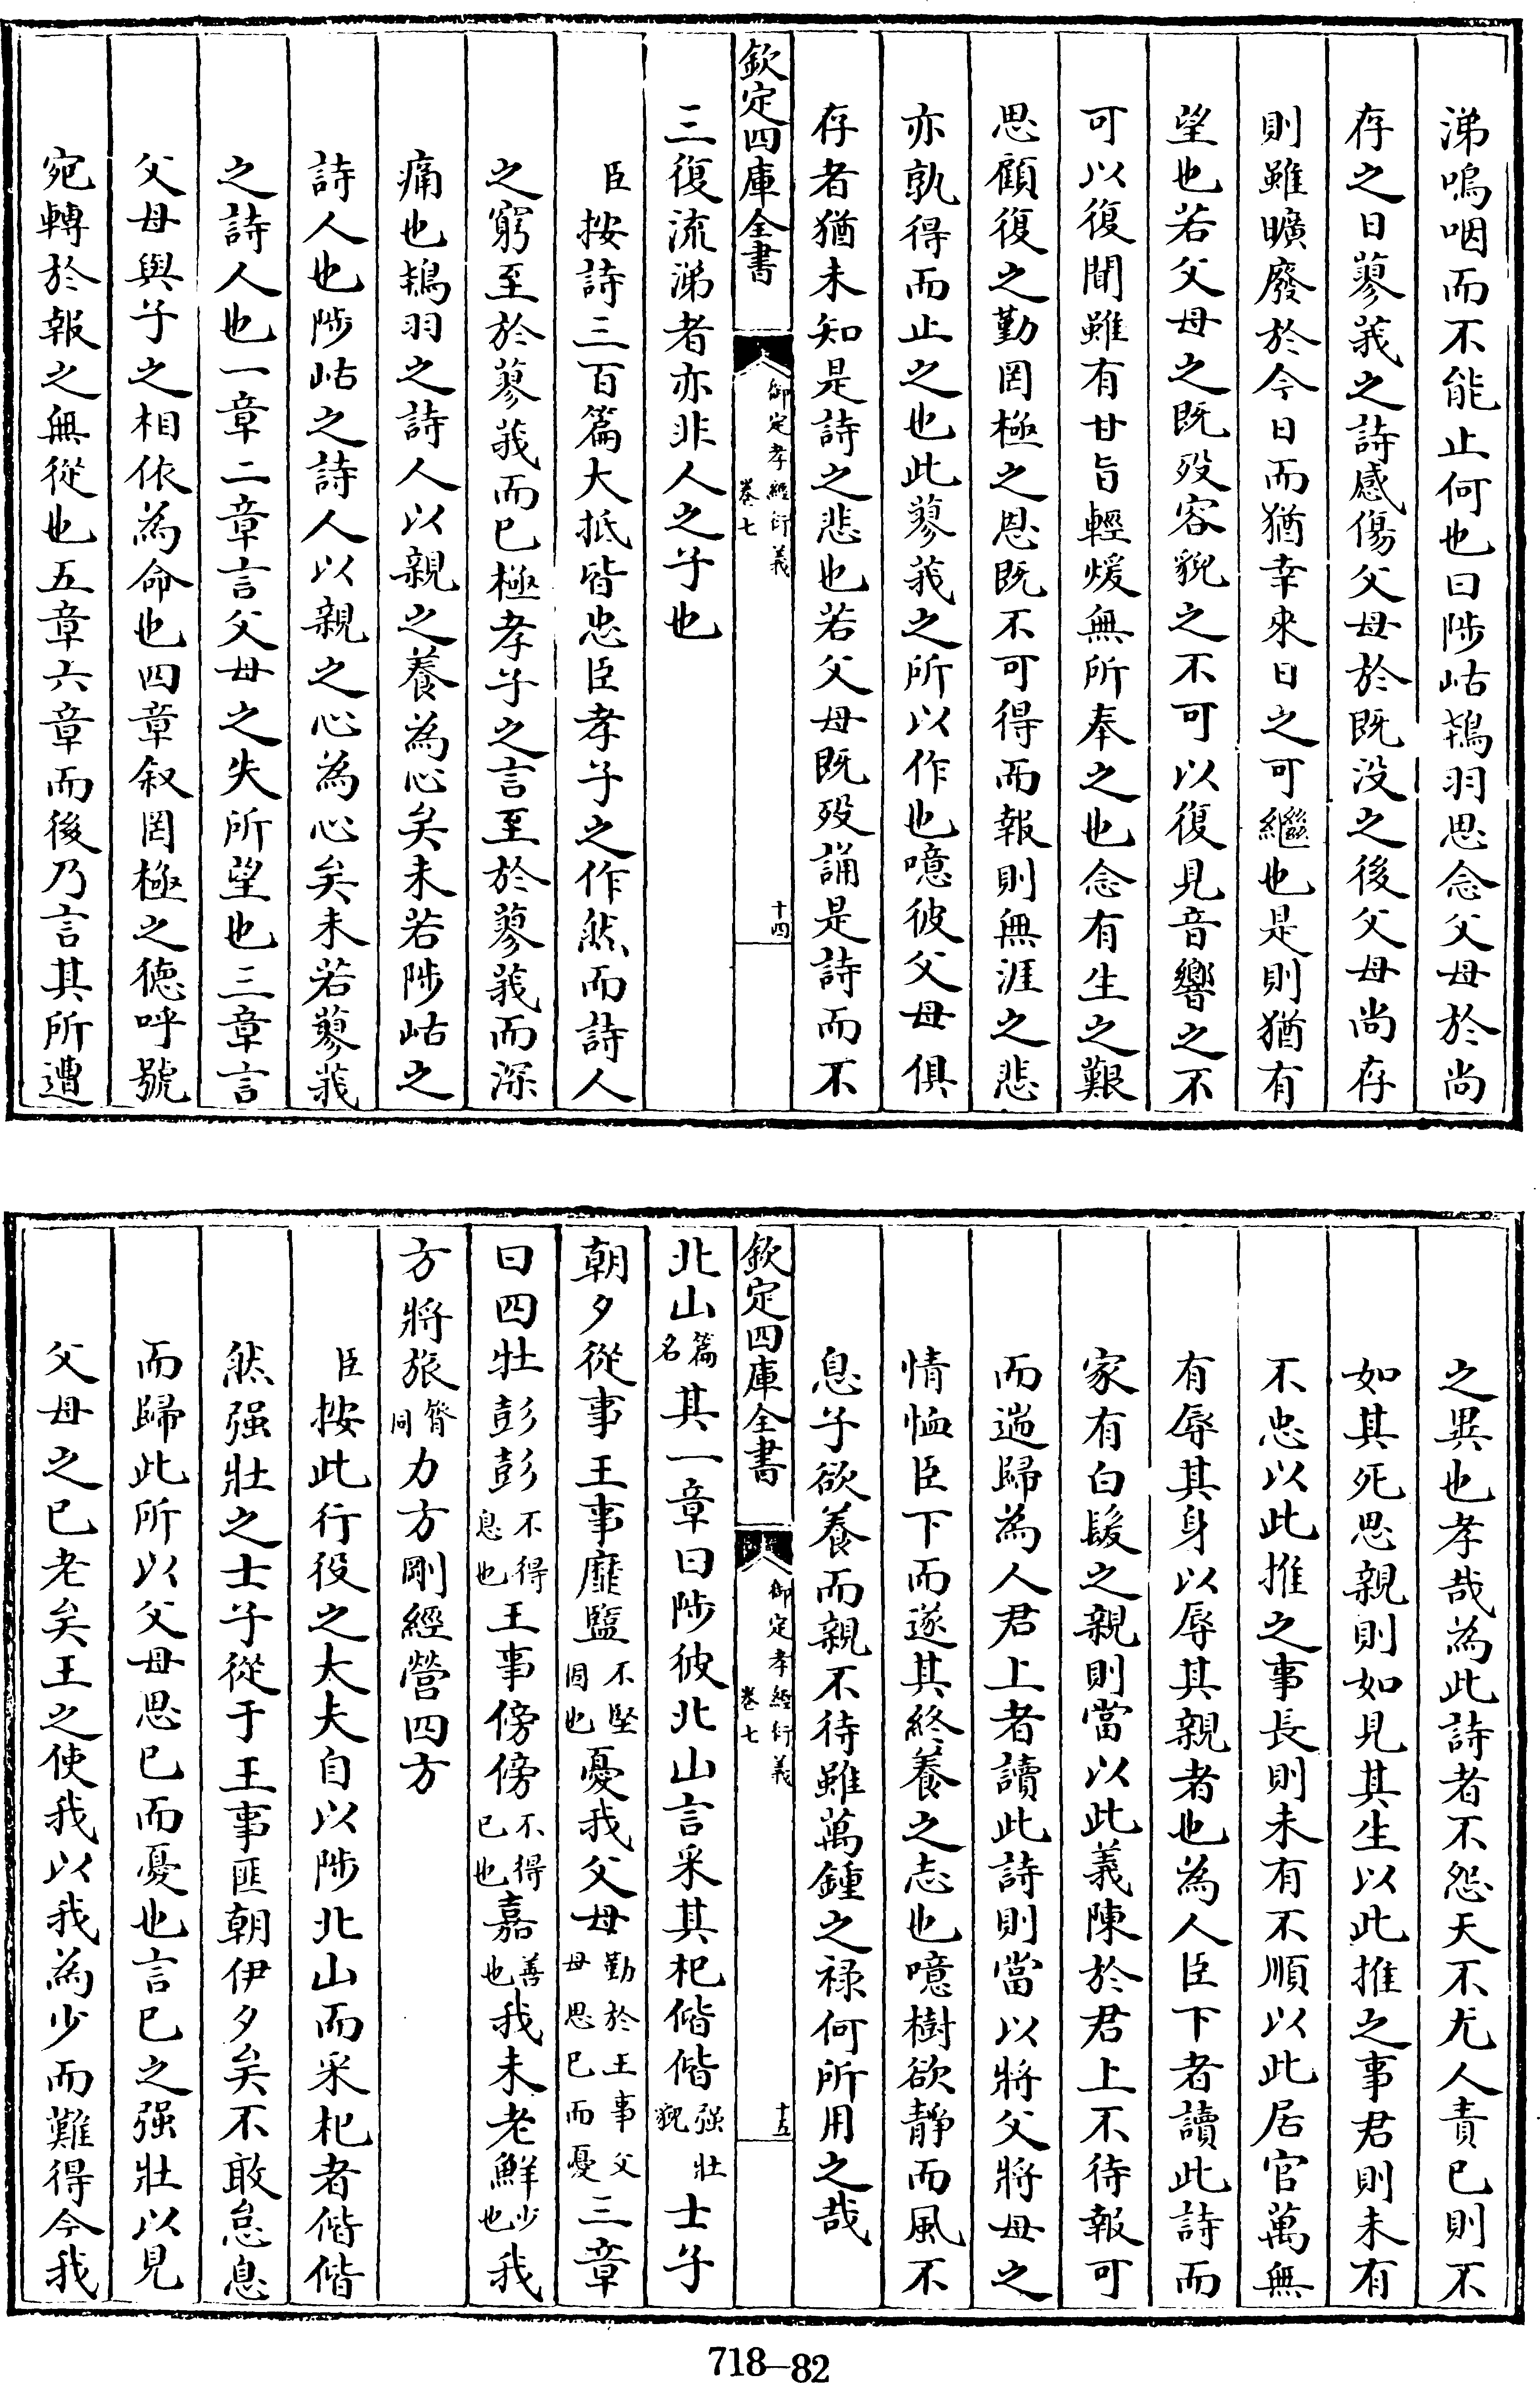 涕嗚咽而不能止何也曰陟岵鴇羽思念父母於尚
存之日蓼莪之詩感傷父母於既没之後父母尚存
則雖曠廢於今日而猶幸來日之可繼也是則猶有
望也若父母之既歿容貌之不可以復見音響之不
可以復聞雖有甘旨輕煖無所奉之也念有生之艱
思顧復之勤罔極之恩既不可得而報則無涯之悲
亦孰得而止之也此蓼莪之所以作也噫彼父母俱
存者猶未知是詩之悲也若父母既歿誦是詩而不
欽定四庫全書 御定孝經衍義 卷七 十四
三復流涕者亦非人之子也
臣按詩三百篇大抵皆忠臣孝子之作然而詩人
之窮至於蓼莪而已極孝子之言至於蓼莪而深
痛也鴇羽之詩人以親之養為心矣未若陟岵之
詩人也陟岵之詩人以親之心為心矣未若蓼莪
之詩人也一章二章言父母之失所望也三章言
父母與子之相依為命也四章叙罔極之德呼號
宛轉於報之無從也五章六章而後乃言其所遭
之異也孝哉為此詩者不怨天不尤人責已則不
如其死思親則如見其生以此推之事君則未有
不忠以此推之事長則未有不順以此居官萬無
有辱其身以辱其親者也為人臣下者讀此詩而
家有白髮之親則當以此義陳於君上不待報可
而遄歸為人君上者讀此詩則當以將父將母之
情恤臣下而遂其終養之志也噫樹欲靜而風不
息子欲養而親不待雖萬鍾之禄何所用之哉
欽定四庫全書 御定孝經衍義 卷七 十五
北山篇名其一章曰陟彼北山言采其杞偕偕强壯貌士子
朝夕從事王事靡盬不堅固也憂我父母勤於王事父母思已而憂三章
曰四牡彭彭不得息也王事傍傍不得已也嘉善也我未老鮮少也我
方將旅膂同力方剛經營四方
臣按此行役之大夫自以陟北山而采杞者偕偕
然强壯之士子從于王事匪朝伊夕矣不敢怠息
而歸此所以父母思已而憂也言已之强壯以見
父母之已老矣王之使我以我為少而難得今我
718-82